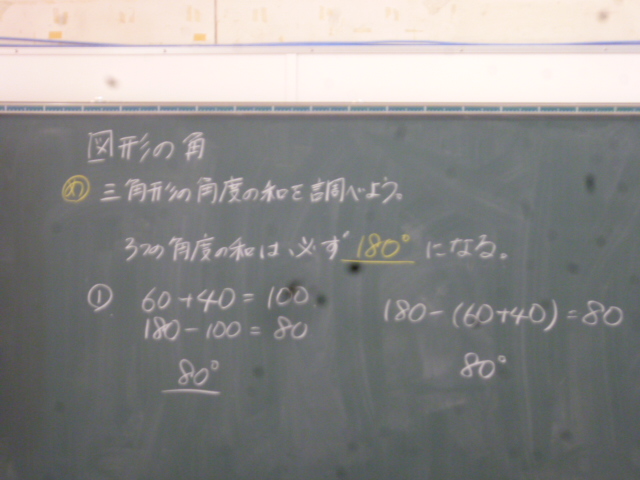 図形の角
め 三角形の角度の和を調べよう。
3つの角度の和は必ず 180° になる。
① 60+40=100
180-100=80
80°
180-(60+40)=80
80°